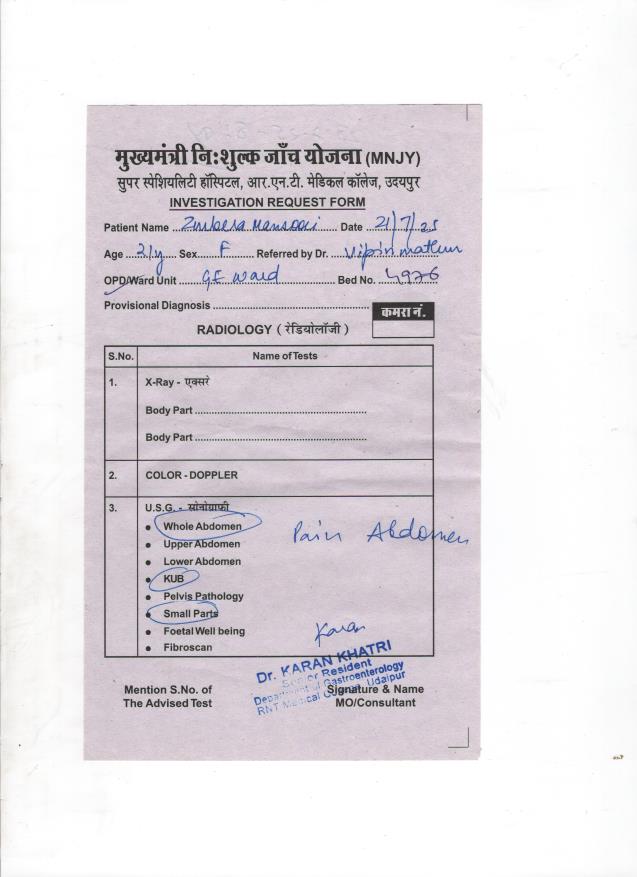 मुख्यमंत्री नि:शुल्क जाँच योजना (MNJY)
सुपर स्पेशियलिटी हॉस्पिटल, आर.एन.टी. मेडिकल कॉलेज, उदयपुर
INVESTIGATION REQUEST FORM
Patient Name Date 21/7/25
Age 21y Sex F Referred by Dr. Vipin mathur
OPD/Ward Unit GE Ward Bed No. 4976
Provisional Diagnosis
कमरा नं.
RADIOLOGY ( रेडियोलॉजी )
S.No. Name of Tests
1. X-Ray - एक्सरे
Body Part
Body Part
2. COLOR - DOPPLER
3. U.S.G. - सोनोग्राफी
Whole Abdomen Pain Abdomen
Upper Abdomen
Lower Abdomen
KUB
Pelvis Pathology
Small Parts
Foetal Well being Karan
Fibroscan
Dr. KARAN KHATRI
Senior Resident
Department of Gastroenterology
RNT Medical College, Udaipur
Mention S.No. of Signature & Name
The Advised Test MO/Consultant